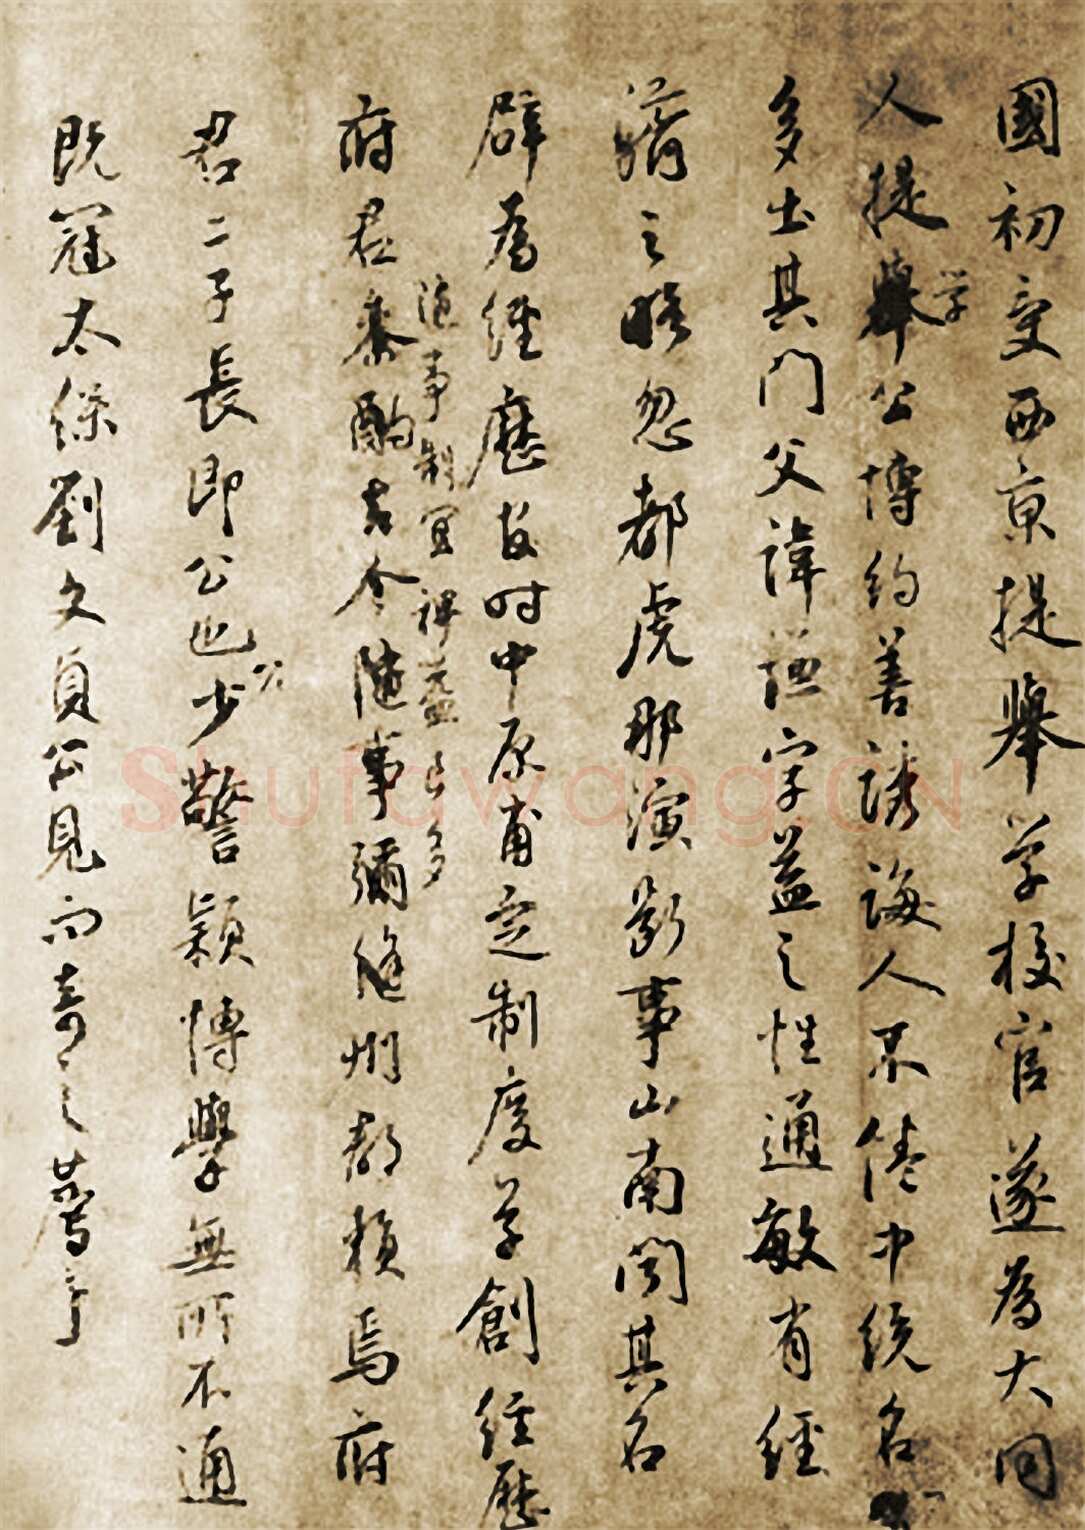 國初受西京提舉学校官遂為大同
人提舉学公博約善誘誨人不倦中統名
多出其門父諱謙字益之性通敏有經
濟之略忽都虎那演断事山南聞其名
辟為經歷故时中原甫定制度草創經歷
府君参酌古今随事彌縫州郡賴焉府
随事制宜裨益良多
君二子長即公也少警穎博學無所不通
公
既冠太保劉文貞公見而奇之薦于
Shufawang.CN